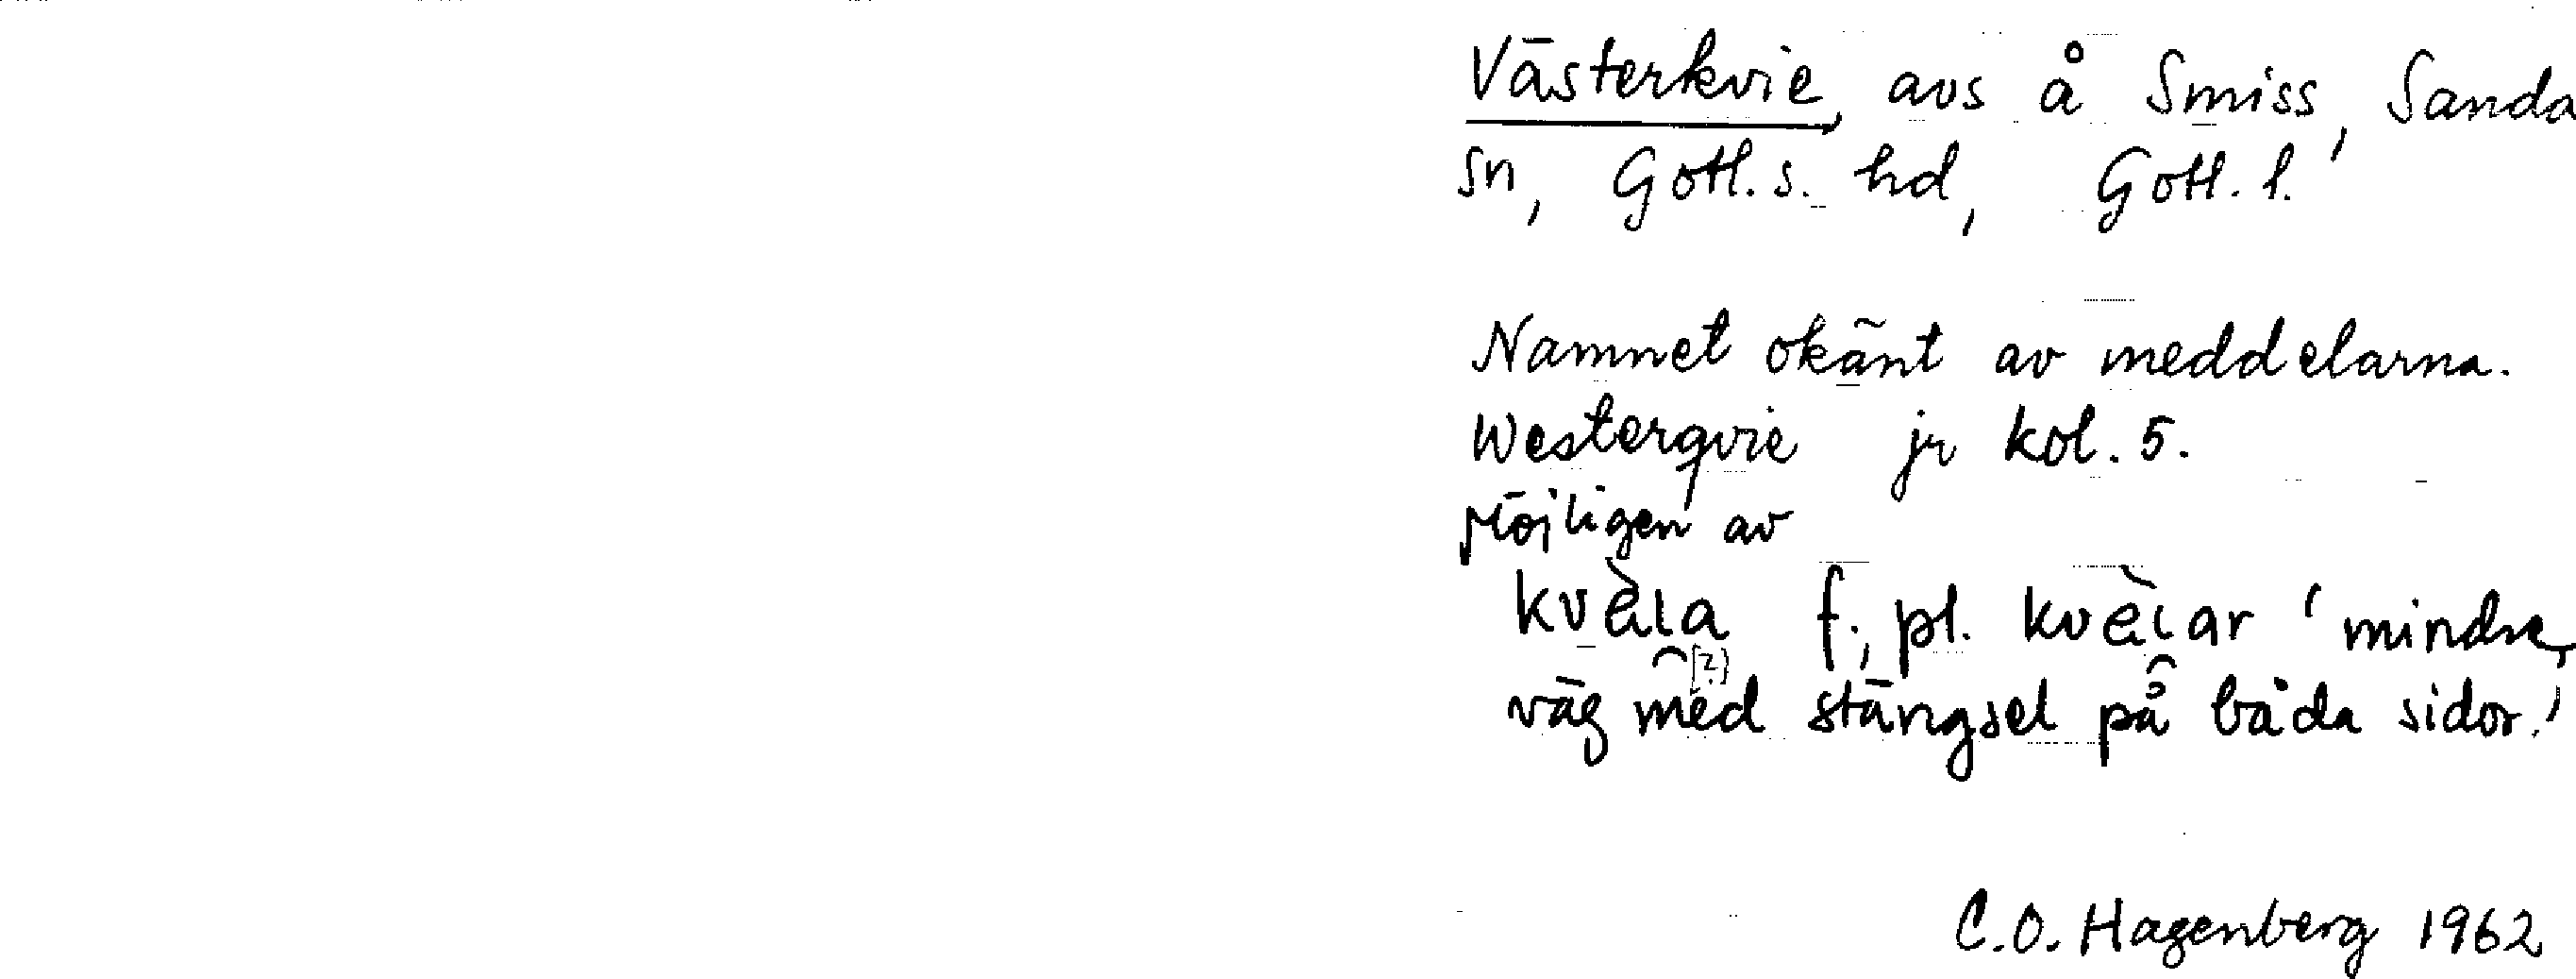 Västerkvie, avs å Smiss, Sanda
sn, Gotl. s. hd, Gotl. l.
Namnet okänt av meddelarna.
Westerqvie jr kol. 5.
Möjligen av
f., pl. 'mindre
[?]
väg med stängsel på båda sidor.'
C.O. Hagenberg 1962